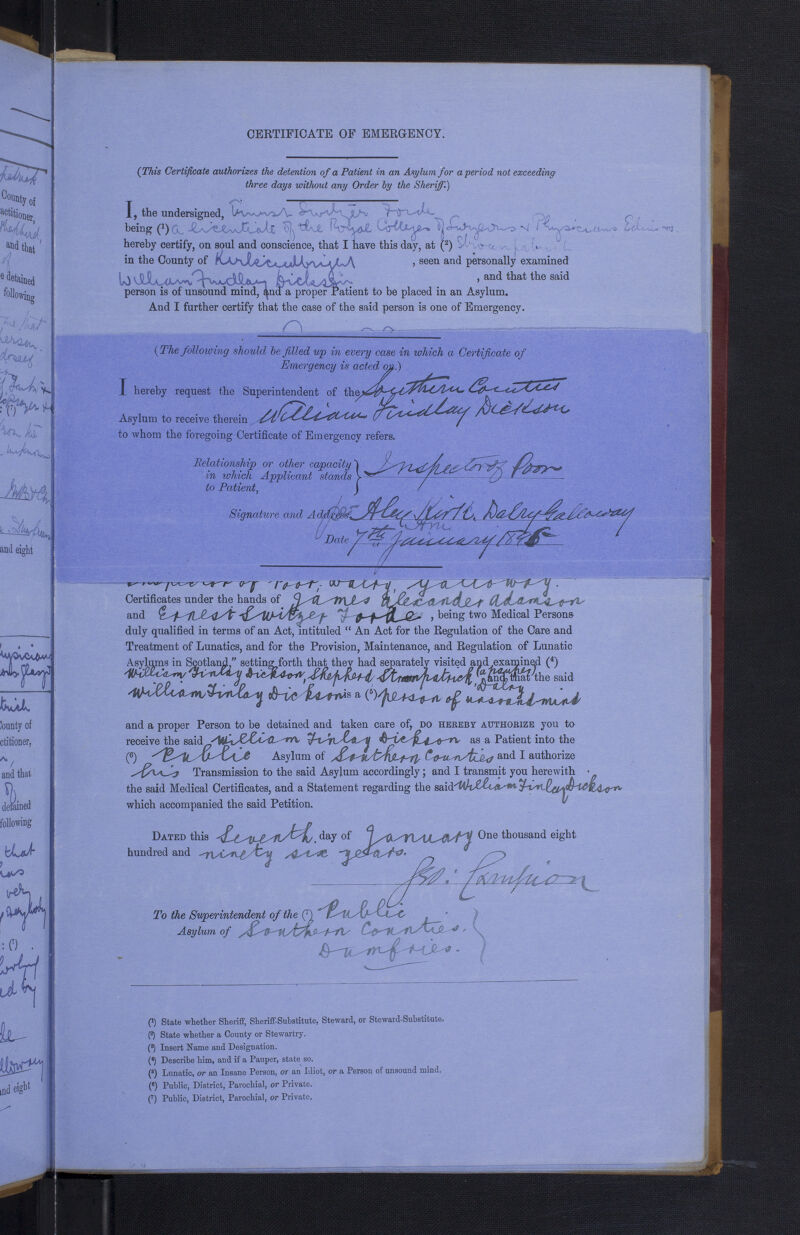 CERTIFICATE OF EMERGENCY.
(This Certificate authorizes the detention of a Patient in an Asylum for a period not exceeding
three days without any Order by the Sheriff.)
I, the undersigned, Ernest Switzer Forde
being (¹) a Licentiate of the Royal Colleges of Surgeons & Physicians
hereby certify, on soul and conscience, that I have this day, at (²) Stroanpatrick
in the County of Kirkcudbright , seen and personally examined
William Findlay Dickson , and that the said
person is of unsound mind, and a proper Patient to be placed in an Asylum.
And I further certify that the case of the said person is one of Emergency.
(The following should be filled up in every case in which a Certificate of
Emergency is acted on.)
I hereby request the Superintendent of the Southern Counties
Asylum to receive therein William Findlay Dickson
to whom the foregoing Certificate of Emergency refers.
Relationship or other capacity
in which Applicant stands } Inspector of Poor
to Patient,
Signature and Address, Alex Kirk. Dalry Galloway
Date 7th January 1896
Inspector of Poor, Dalry, Galloway.
Certificates under the hands of James Alexander Adamson
and Ernest Switzer Forde , being two Medical Persons
duly qualified in terms of an Act, intituled “ An Act for the Regulation of the Care and
Treatment of Lunatics, and for the Provision, Maintenance, and Regulation of Lunatic
Asylums in Scotland,” setting forth that they had separately visited and examined (⁴)
William Finlay Dickson, Shepherd Stroanpatrick Dalry (a pauper) and that the said
William Finlay Dickson is a (⁵) person of unsound mind
and a proper Person to be detained and taken care of, DO HEREBY AUTHORIZE you to
receive the said William Finlay Dickson as a Patient into the
(⁶) Public Asylum of Southern Counties and I authorize
his Transmission to the said Asylum accordingly; and I transmit you herewith
the said Medical Certificates, and a Statement regarding the said William Finlay Dickson
which accompanied the said Petition.
DATED this Seventh day of January One thousand eight
hundred and ninety six years.
Campion
To the Superintendent of the (⁷) Public
Asylum of Southern Counties.
Dumfries.
(¹) State whether Sheriff, Sheriff-Substitute, Steward, or Steward-Substitute.
(²) State whether a County or Stewartry.
(³) Insert Name and Designation.
(⁴) Describe him, and if a Pauper, state so.
(⁵) Lunatic, or an Insane Person, or an Idiot, or a Person of unsound mind.
(⁶) Public, District, Parochial, or Private.
(⁷) Public, District, Parochial, or Private.